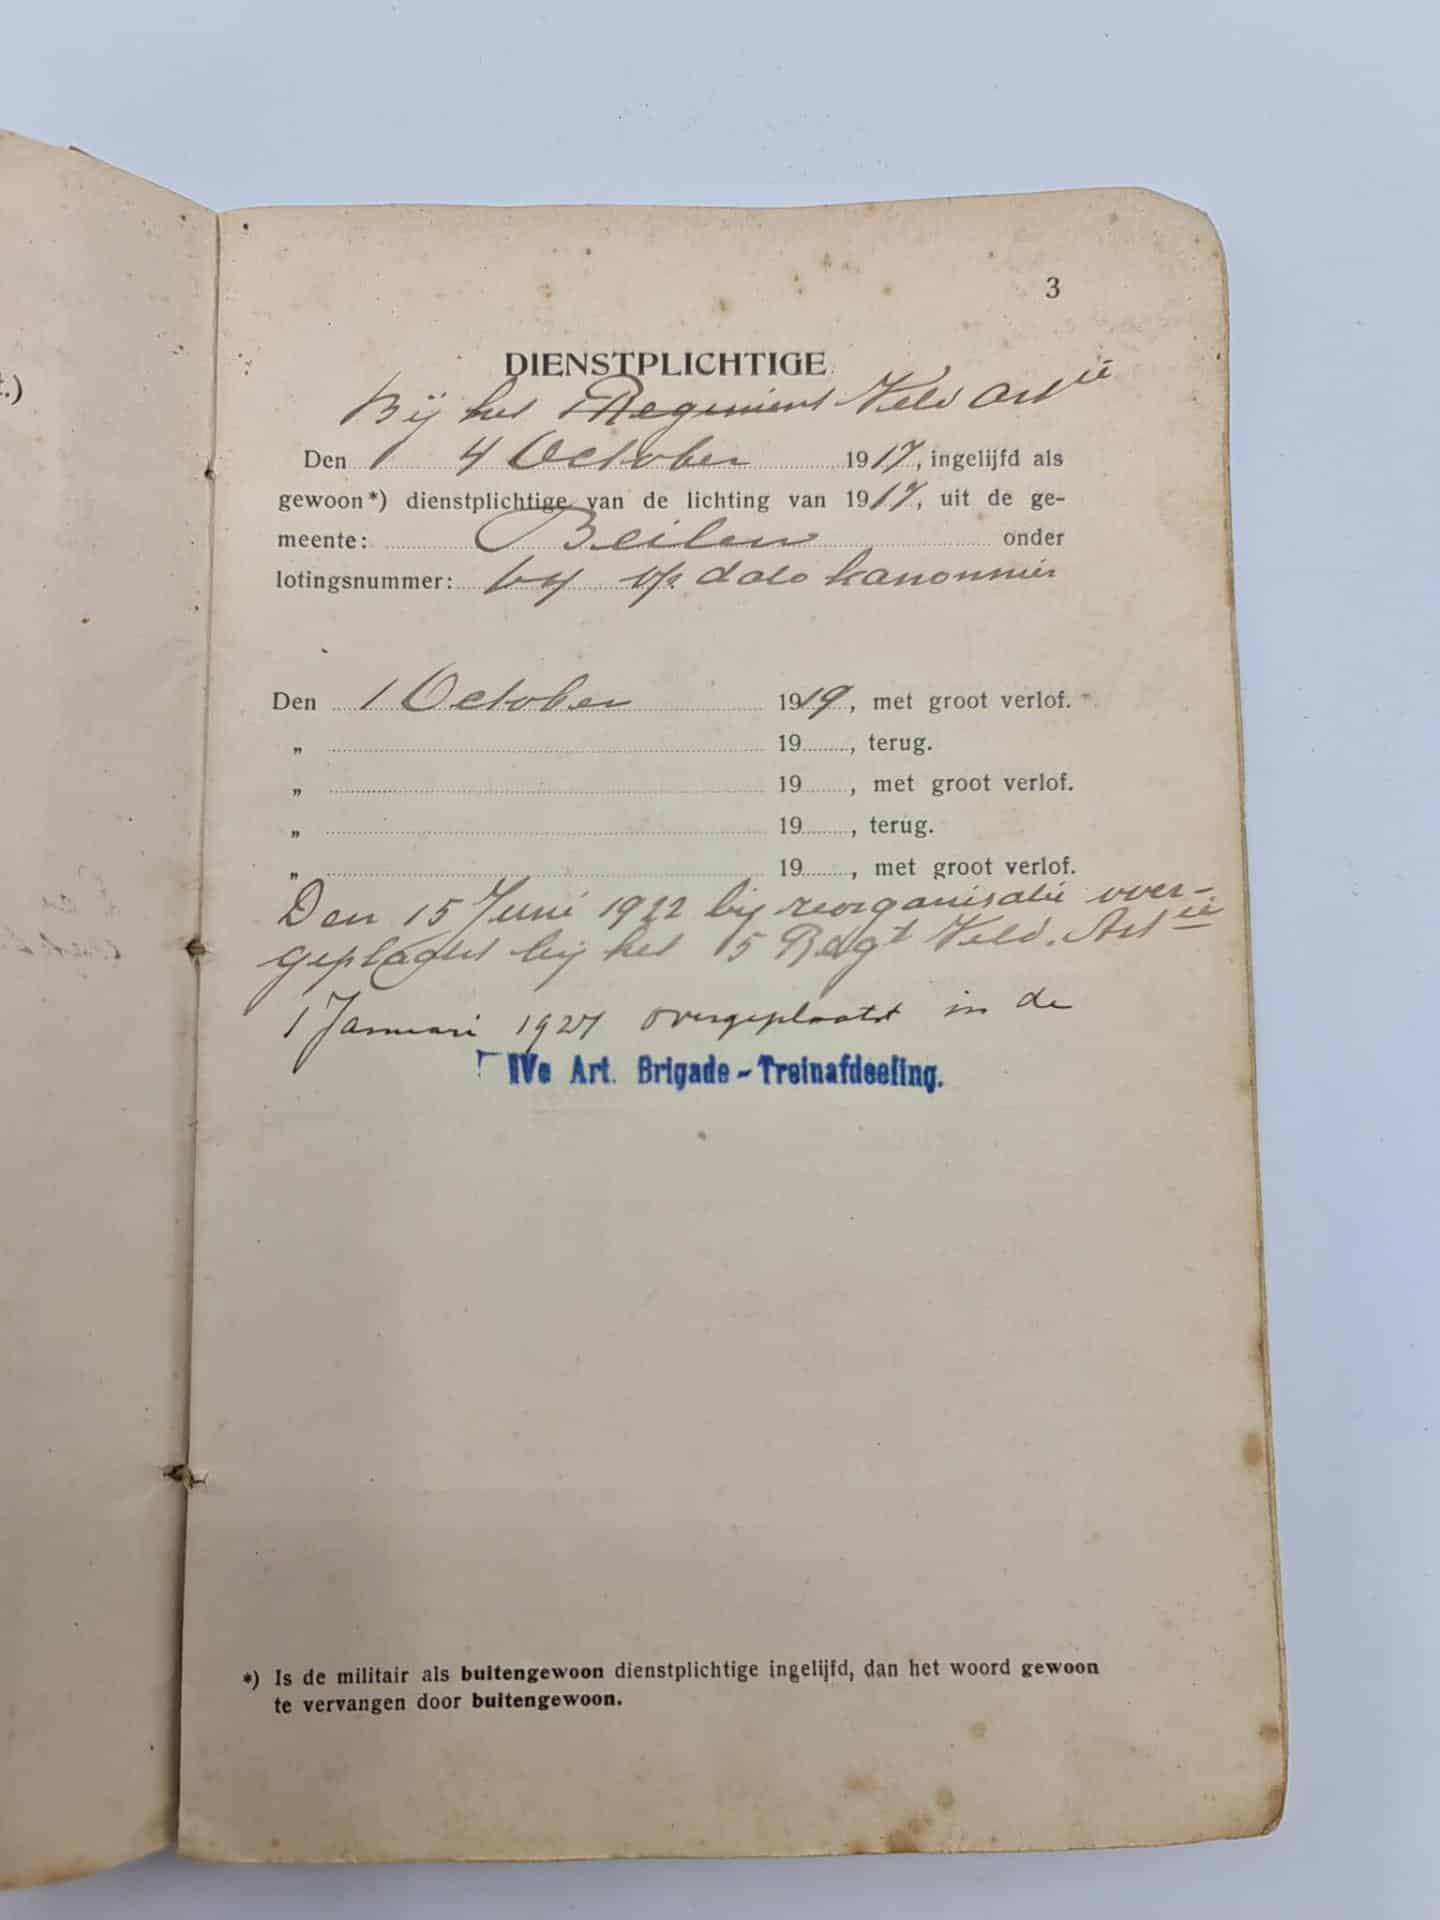 t.)
3
DIENSTPLICHTIGE
Bij het Regiment Veld Artie
Den 4 October 1917, ingelijfd als
gewoon*) dienstplichtige van de lichting van 1917, uit de ge-
meente: Beilen onder
lotingsnummer: 64 op dato kanonnier
Den 1 October 1919, met groot verlof.
„ 19 , terug.
„ 19 , met groot verlof.
„ 19 , terug.
„ 19 , met groot verlof.
Den 15 Juni 1922 bij reorganisatie over-
geplaatst bij het 5 Regt Veld. Artie
1 Januari 1927 overgeplaatst in de
IVe Art. Brigade-Treinafdeeling.
*) Is de militair als buitengewoon dienstplichtige ingelijfd, dan het woord gewoon
te vervangen door buitengewoon.